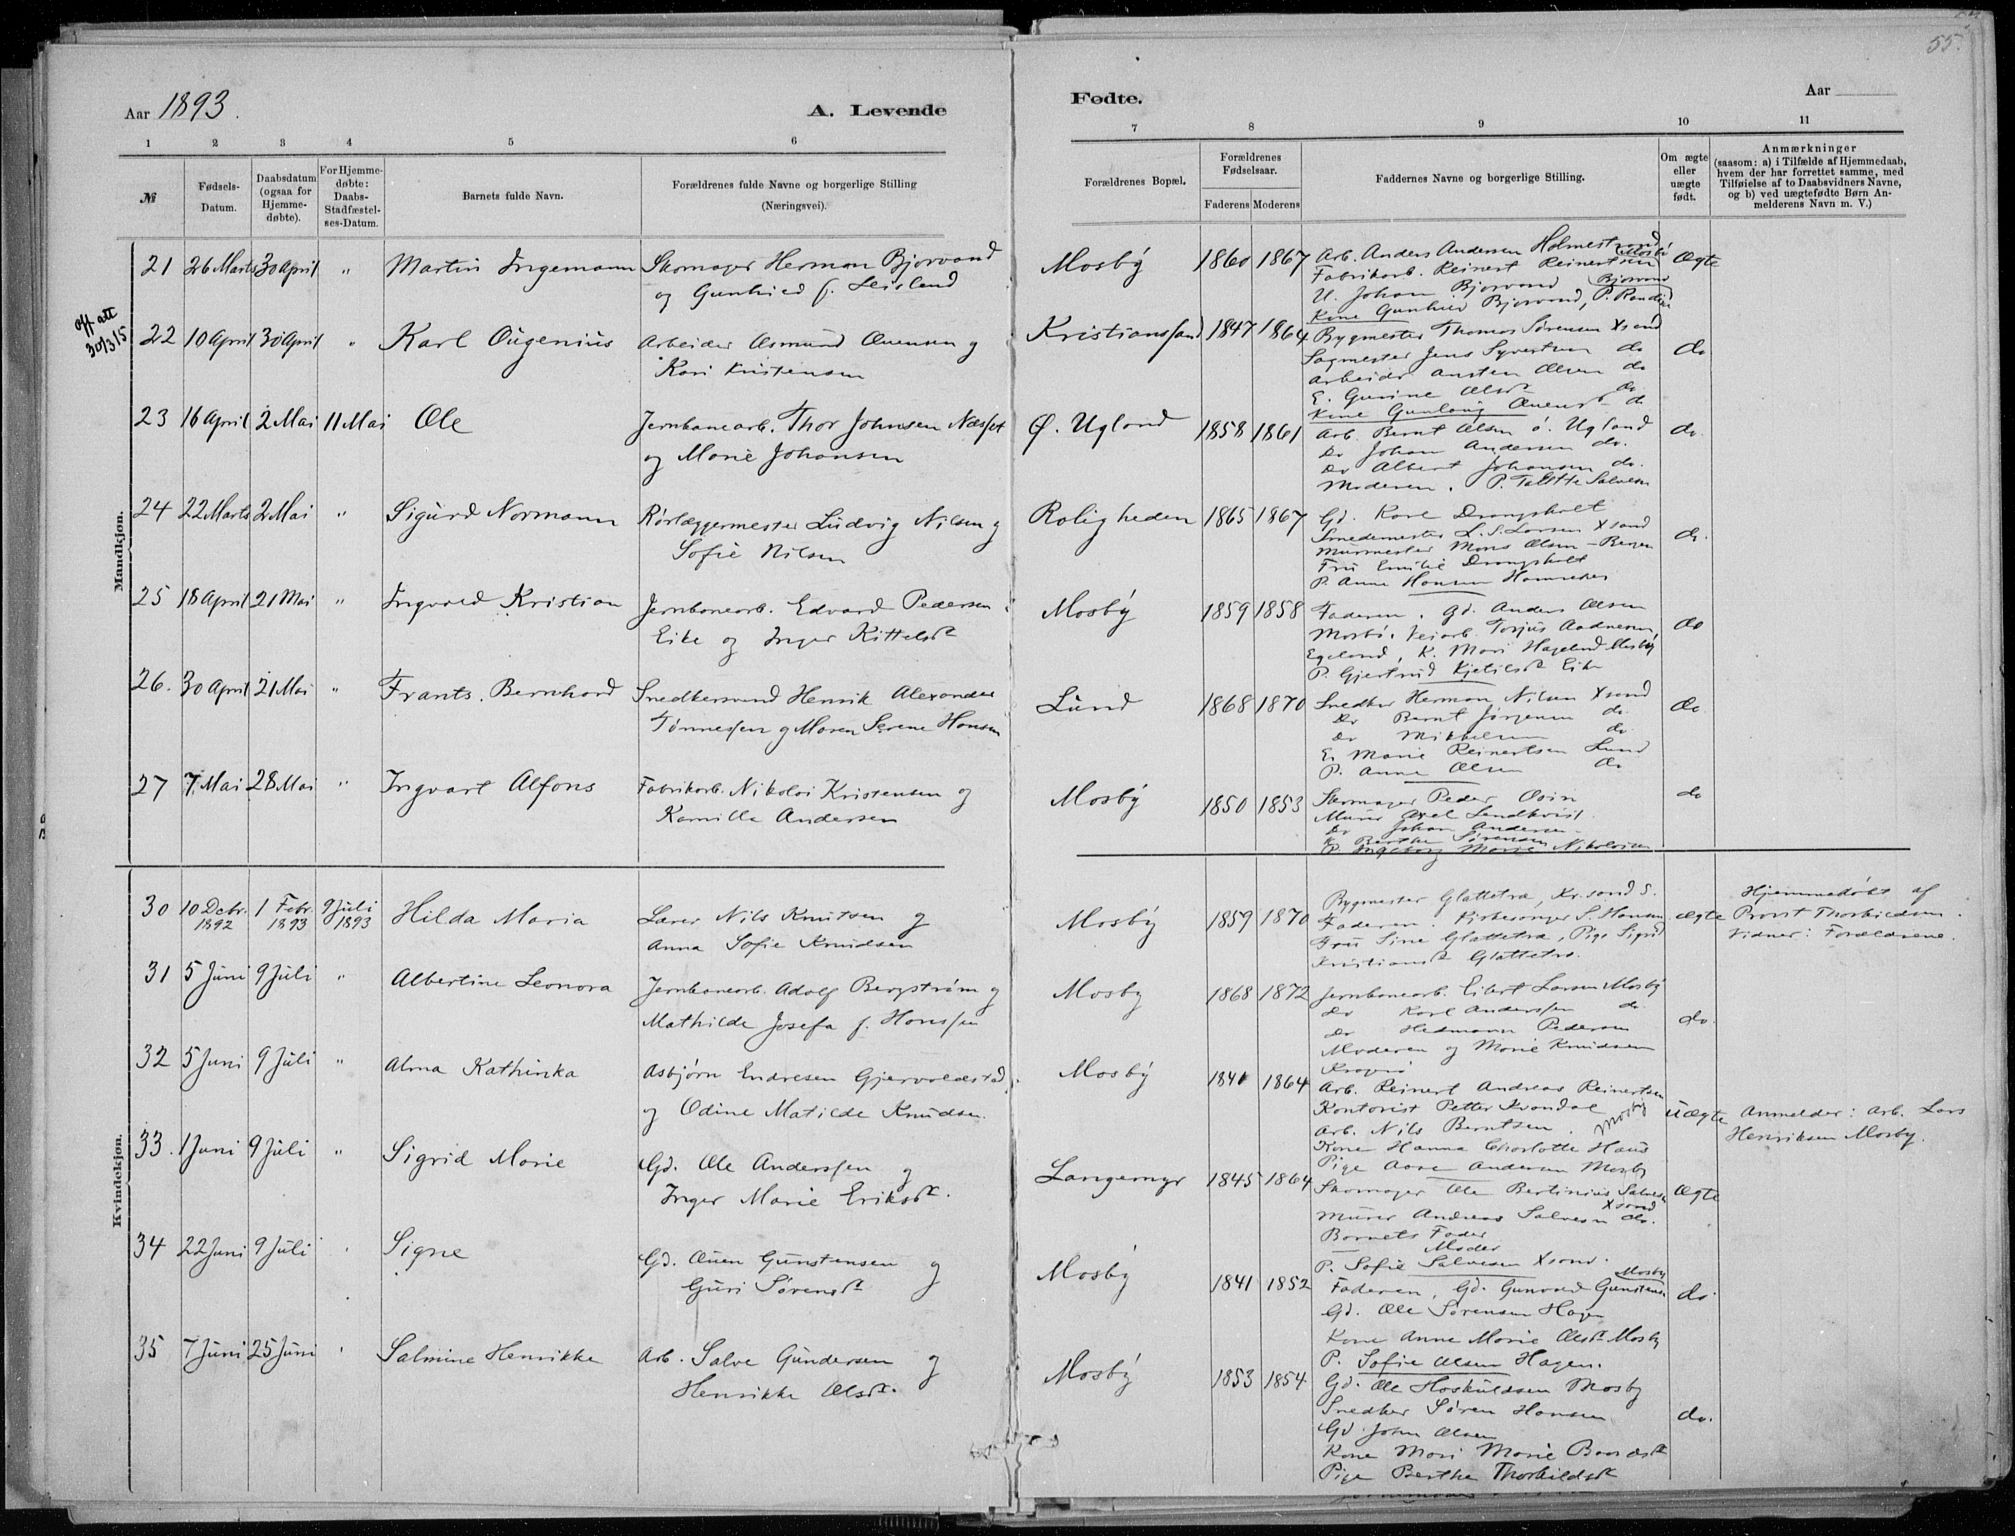 55.
Aar 1893.
A. Levende
Fødte.
Aar
1 2 3 4 5 6 7 8 9 10 11
№
Fødsels-
Datum.
Daabsdatum
(ogsaa for
Hjemme-
døbte).
For Hjemme-
døbte:
Daabs-
Stadfæstel-
ses-Datum.
Barnets fulde Navn.
Forældrenes fulde Navne og borgerlige Stilling
(Næringsvei).
Forældrenes Bopæl.
Forældrenes
Fødselsaar.
Faderens Moderens
Faddernes Navne og borgerlige Stilling.
Om ægte
eller
uægte
født.
Anmærkninger
(saasom: a) i Tilfælde af Hjemmedaab,
hvem der har forrettet samme, med
Tilføielse af to Daabsvidners Navne,
og b) ved uægtefødte Børn An-
melderens Navn m. V.)
Mandkjøn.
21 26 Marts 30 April " Martin Ingemann Skomager Herman Bjorvand
og Gunhild f. Leisland
Mosby 1860 1867 Arb. Anders Andersen Holmestrand Ægte
Fabrikarb. Reinert Reinertsen Mosby
U. Johan Bjorvand Bjorvand
Kone Gunhild Bjorvand, P. Randi
Off att
30/3 15
22 10 April 30 April " Karl Eugenius Arbeider Asmund Evensen og
Kari Kristensen
Kristianssand 1847 1864 Bygmester Thomas Sørensen Xsand do
Sagmester Jens Syvertsen do
Arbeider Ansten Olsen do
E. Gurine Olsdt do
Kone Gunlaug Evensdt do
23 16 April 2 Mai 11 Mai Ole Jernbanearb. Thor Johnsen Næsset
og Marie Johansen
Ø. Ugland 1858 1861 Arb. Bernt Olsen Ø. Ugland do.
Do Johan Andersen do.
Do Albert Johansen do.
Moderen. P. Salvesen
24 22 Marts 2 Mai " Sigurd Normann Rørlæggermester Ludvig Nilsen og
Sofie Nilsen
Roligheden 1865 1867 Gd. Karl Drangsholt do.
Smedemester L. S. Larsen Xsand
Murmester Mons Olsen - Bergen
Fru Emilie Drangsholt
P. Anne Hansen Hamresan
25 18 April 21 Mai " Ingvald Kristian Jernbanearb. Edvard Pedersen
Eike og Inger Kittelsdt
Mosby 1859 1858 Faderen. Gd. Anders Olsen do
Mosby. Veiarb. Torjus Aadnesen,
Egeland, K. Mari Hageland Mosby
P. Gjertrud Kjetilsdt Eike
26. 30 April 21 Mai " Frants. Bernhard Snedkersvend Henrik Alexander
Tønnessen og Maren Serene Hansen
Lund 1868 1870 Snedker Herman Nilsen Xsand do.
Do Bernt Jørgensen do
Do Mikkelsen do
E. Marie Reinertsen Lund
P. Anne Olsen do
27 7. Mai 28 Mai " Ingvart Alfons Fabrikarb. Nikolai Kristensen og
Kamilla Andersen
Mosby 1850 1853 Skomager Peder Osin do
Murer Axel Lendkvist
Do Johan Andersen
K. Berthe Sørensen
P. Ingeborg Marie Nikolaisen
Kvindekjøn.
30 10 Decbr. 1892 1 Febr. 1893 9 Juli 1893 Hilda Maria Lærer Nils Knutsen og
Anna Sofie Knudsen
Mosby 1859 1870 Bygmester Glattetra, Kr.sand S. ægte Hjemmedøbt af
Faderen. Kirkesanger S. Hansen Provst Thorkildsen.
Fru Sine Glattetra, Pige Sigrid Vidner: Forældrene.
Kristiansdt Glattetra.
31 5 Juni 9 Juli " Albertine Leonora Jernbanearb. Adolf Bergstrøm og
Mathilde Josefa f. Hanssen
Mosby 1868 1872 Jernbanearb. Eilert Larsen Mosby do.
Do Karl Anderssen do.
Do Hedmann Pedersen
Moderen og Marie Knudsen
Kragerø
32 5 Juni 9 Juli " Alma Kathinka Asbjørn Endresen Gjervoldstad
og Odine Matilde Knudsen.
Mosby 1841 1864 Arb. Reinert Andreas Reinertsen
Kontorist Petter Kvandal uægte Anmelder: Arb. Lars
Arb. Nils Berntsen. Mosby Henriksen Mosby.
Kone Hanna Charlotte Haus
Pige Aase Andersen Mosby
33. 1 Juni 9 Juli " Sigrid Marie Gd. Ole Anderssen og
Inger Marie Eriksdt.
Langemyr 1845 1864 Skomager Ole Bertinius Salvesen Ægte
Xsand
Murer Andreas Salvesen do.
Barnets Fader
— Moder
P. Sofie Salvesen Xsand.
34 22 Juni 9 Juli " Signe Gd. Even Gunstensen og
Guri Sørensdt
Mosby 1841 1852 Faderen, Gd. Gunvald Gunstensen Mosby do.
Gd. Ole Sørensen Hagen
Kone Anne Marie Olsdt Mosby
P. Sofie Olsen Hagen.
35 7 Juni 25 Juni " Salmine Henrikke Arb. Salve Gundersen og
Henrikke Olsdt.
Mosby 1853 1854 Gd. Ole Hoskuldsen Mosby do.
Snedker Søren Hansen
Gd. John Olsen
Kone Mari Marie Baardsdt
Pige Berthe Thorkildsdt